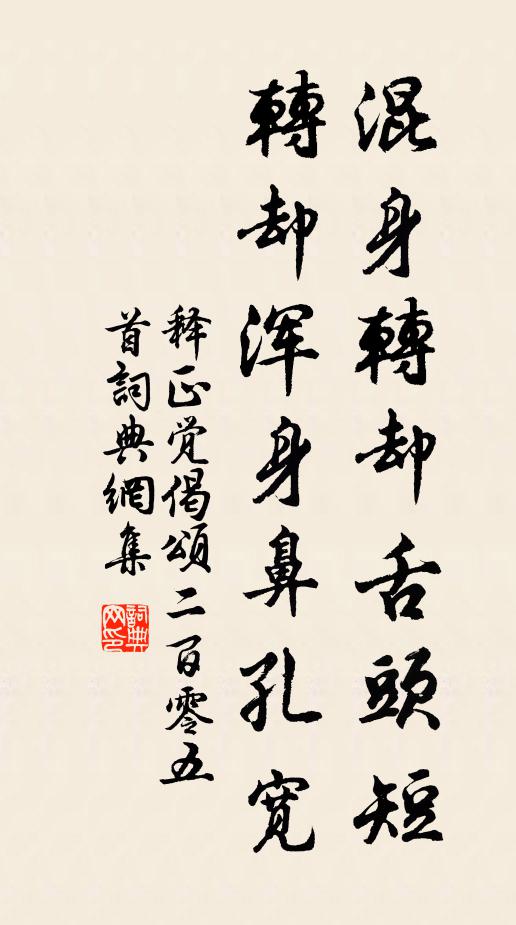 混身轉却舌頭短
轉却浑身鼻孔寬
释正覚偈頌二百零五
首詞典網集
詞典
网印